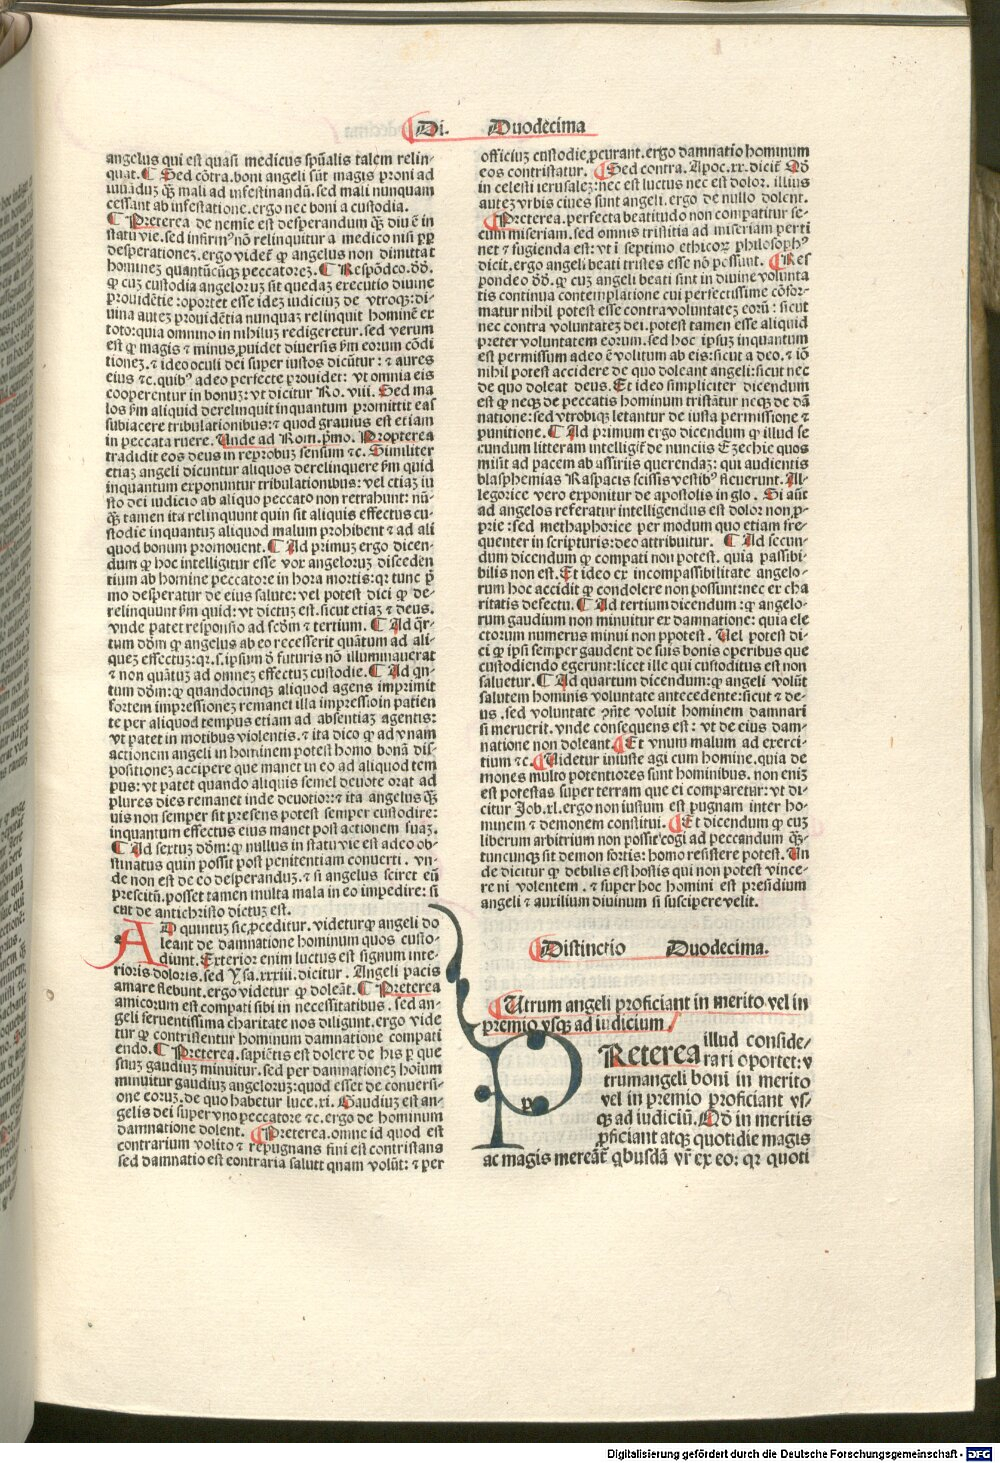 Di. Duodecima
angelus qui est quasi medicus spūalis talem relin-
quat. ¶ Sed cōtra. boni angeli sūt magis proni ad
iuuādū qȝ mali ad infestandū. sed mali nunquam
cessant ab infestatione. ergo nec boni a custodia.
¶ Preterea de nemīe est desperandum qȝ diu ē in
statu vie. sed infirmꝰ nō relinquitur a medico nisi ꝓpꝑ
desperationeȝ. ergo videt̄ ꝙ angelus non dimittat
homineȝ quantūcūqȝ peccatoreȝ. ¶ Respōdeo. dd.
ꝙ cuȝ custodia angeloruȝ sit quedaȝ executio diuine
prouidētie: oportet esse ideȝ iudiciuȝ de vtroqȝ: di-
uina auteȝ prouidētia nunquaȝ relinquit hominē ex
toto: quia omnino in nihiluȝ redigeretur. sed verum
est ꝙ magis ⁊ minus ꝓuidet diuersis ẜm eorum cōdi
tioneȝ. ⁊ ideo oculi dei super iustos dicūtur: ⁊ aures
eius ⁊c. quibꝰ adeo perfecte ꝓuidet: vt omnia eis
cooperentur in bonuȝ: vt dicitur Ro. viii. Sed ma
los ẜm aliquid derelinquit inquantum promittit eas
subiacere tribulationibus: ⁊ quod grauius est etiam
in peccata ruere. Unde ad Rom. pmo. Propterea
tradidit eos deus in reprobuȝ sensum ⁊c. Similiter
etiaȝ angeli dicuntur aliquos derelinquere ẜm quid
inquantum exponuntur tribulationibus: vel etiaȝ iu
sto dei iudicio ab aliquo peccato non retrahunt: nū-
qȝ tamen ita relinquunt quin sit aliquis effectus cu-
stodie inquantuȝ aliquod malum prohibent ⁊ ad ali
quod bonum promouent. ¶ Ad primuȝ ergo dicen-
dum ꝙ hoc intelligitur esse vox angeloruȝ disceden
tium ab homine peccatore in hora mortis: qꝛ tunc p̄
mo desperatur de eius salute: vel potest dici ꝙ de-
relinquunt ẜm quid: vt dictuȝ est. sicut etiaȝ ⁊ deus.
vnde patet responsio ad scdm ⁊ tertium. ¶ Ad qr̄-
tum ddm ꝙ angelus ab eo recesserit quātum ad ali-
queȝ effectuȝ: qꝛ. s. ipsum d̄ futuris nō illuminauerat
⁊ non quātuȝ ad omneȝ effectuȝ custodie. ¶ Ad qn-
tum ddm: ꝙ quandocunqȝ aliquod agens imprimit
fortem impressioneȝ remanet illa impressio in patien
te per aliquod tempus etiam ad absentiaȝ agentis:
vt patet in motibus violentis. ⁊ ita dico ꝙ ad vnam
actionem angeli in hominem potest homo bonā dis-
positioneȝ accipere que manet in eo ad aliquod tem
pus: vt patet quando aliquis semel deuote orat ad
plures dies remanet inde deuotior: ⁊ ita angelus qȝ
uis non semper sit presens potest semper custodire:
inquantum effectus eius manet post actionem suaȝ.
¶ Ad sextuȝ ddm: ꝙ nullus in statu vie est adeo ob-
stinatus quin possit post penitentiam conuerti. vn-
de non est de eo desperanduȝ. ⁊ si angelus sciret eū
prescitū. posset tamen multa mala in eo impedire: si
cut de antichristo dictuȝ est.
AD quintuȝ sic ꝓceditur. videtur ꝙ angeli do
leant de damnatione hominum quos custo-
diunt. Exterior enim luctus est signum inte-
rioris doloris. sed Ysa. xxxiii. dicitur. Angeli pacis
amare flebunt. ergo videtur ꝙ doleāt. ¶ Preterea
amicorum est compati sibi in necessitatibus. sed an-
geli feruentissima charitate nos diligunt. ergo vide
tur ꝙ contristentur hominum damnatione compati
endo. ¶ Preterea. sapiētis est dolere de his per que
suuȝ gaudiuȝ minuitur. sed per damnationeȝ hoīum
minuitur gaudiuȝ angeloruȝ: quod esset de conuersi-
one eoruȝ. de quo habetur luce. xv. Gaudiuȝ est an-
gelis dei super vno peccatore ⁊c. ergo de hominum
damnatione dolent. ¶ Preterea. omne id quod est
contrarium volito ⁊ repugnans fini est contristans
sed damnatio est contraria saluti quam volūt: ⁊ per
officiuȝ custodie ꝓcurant. ergo damnatio hominum
eos contristatur. ¶ Sed contra. Apoc. xx. dicit̄ Qd
in celesti ierusaleȝ: nec est luctus nec est dolor. illius
auteȝ vrbis ciues sunt angeli. ergo de nullo dolent.
¶ Preterea. perfecta beatitudo non compatitur se-
cum miseriam. sed omnis tristitia ad miseriam perti
net ⁊ fugienda est: vt i septimo ethicoꝝ philosophꝰ
dicit. ergo angeli beati tristes esse nō possunt. ¶ Res
pondeo dd. ꝙ cuȝ angeli beati sint in diuine volunta
tis continua contemplatione cui perfectissime cōfor-
matur nihil potest esse contra voluntateȝ eorū: sicut
nec contra voluntateȝ dei. potest tamen esse aliquid
preter voluntatem eorum. sed hoc ipsuȝ inquantum
est permissum adeo ē volitum ab eis: sicut a deo. ⁊ iō
nihil potest accidere de quo doleant angeli: sicut nec
de quo doleat deus. Et ideo simpliciter dicendum
est ꝙ neqȝ de peccatis hominum tristātur neqȝ de dā
natione: sed vtrobiqȝ letantur de iusta permissione ⁊
punitione. ¶ Ad primum ergo dicendum ꝙ illud se
cundum litteram intelligit̄ de nunciis Ezechie quos
misit ad pacem ab assiriis querendaȝ: qui audientis
blasphemias Raspacis scissis vestibꝰ fleuerunt. Al-
legorice vero exponitur de apostolis in glo. Si aūt
ad angelos referatur intelligendus est dolor non ꝓ-
prie: sed methaphorice per modum quo etiam fre-
quenter in scripturis: deo attribuitur. ¶ Ad secun-
dum dicendum ꝙ compati non potest. quia passibi-
bilis non est. Et ideo ex incompassibilitate angelo-
rum hoc accidit ꝙ condolere non possunt: nec ex cha
ritatis defectu. ¶ Ad tertium dicendum: ꝙ angelo-
rum gaudium non minuitur ex damnatione: quia ele
ctorum numerus minui non ppotest. Uel potest di-
ci ꝙ ipsi semper gaudent de suis bonis operibus que
custodiendo egerunt: licet ille qui custoditus est non
saluetur. ¶ Ad quartum dicendum: ꝙ angeli volūt
salutem hominis voluntate antecedente: sicut ⁊ de-
us. sed voluntate ꝯn̄te voluit hominem damnari
si meruerit. vnde consequens est: vt de eius dam-
natione non doleant. ¶ Et vnum malum ad exerci-
tium ⁊c. ¶ Uidetur iniuste agi cum homine. quia de
mones multo potentiores sunt hominibus. non eniȝ
est potestas super terram que ei comparetur: vt di-
citur Job. xl. ergo non iustum est pugnam inter ho-
minem ⁊ demonem constitui. ¶ Et dicendum ꝙ cuȝ
liberum arbitrium non possit cogi ad peccandum qȝ-
tuncunqȝ sit demon fortis: homo resistere potest. Un
de dicitur ꝙ debilis est hostis qui non potest vince-
re ni volentem. ⁊ super hoc homini est presidium
angeli ⁊ auxilium diuinum si suscipere velit.
¶ Distinctio Duodecima.
¶ Utrum angeli proficiant in merito vel in
premio vsqȝ ad iudicium
PReterea illud conside-
rari oportet: v
trum angeli boni in merito
vel in premio proficiant vs-
qȝ ad iudiciū. Qd in meritis
ꝓficiant atqȝ quotidie magis
ac magis mereāt̄ qbusdā vr̄ ex eo: qꝛ quoti
Digitalisierung gefördert durch die Deutsche Forschungsgemeinschaft - DFG